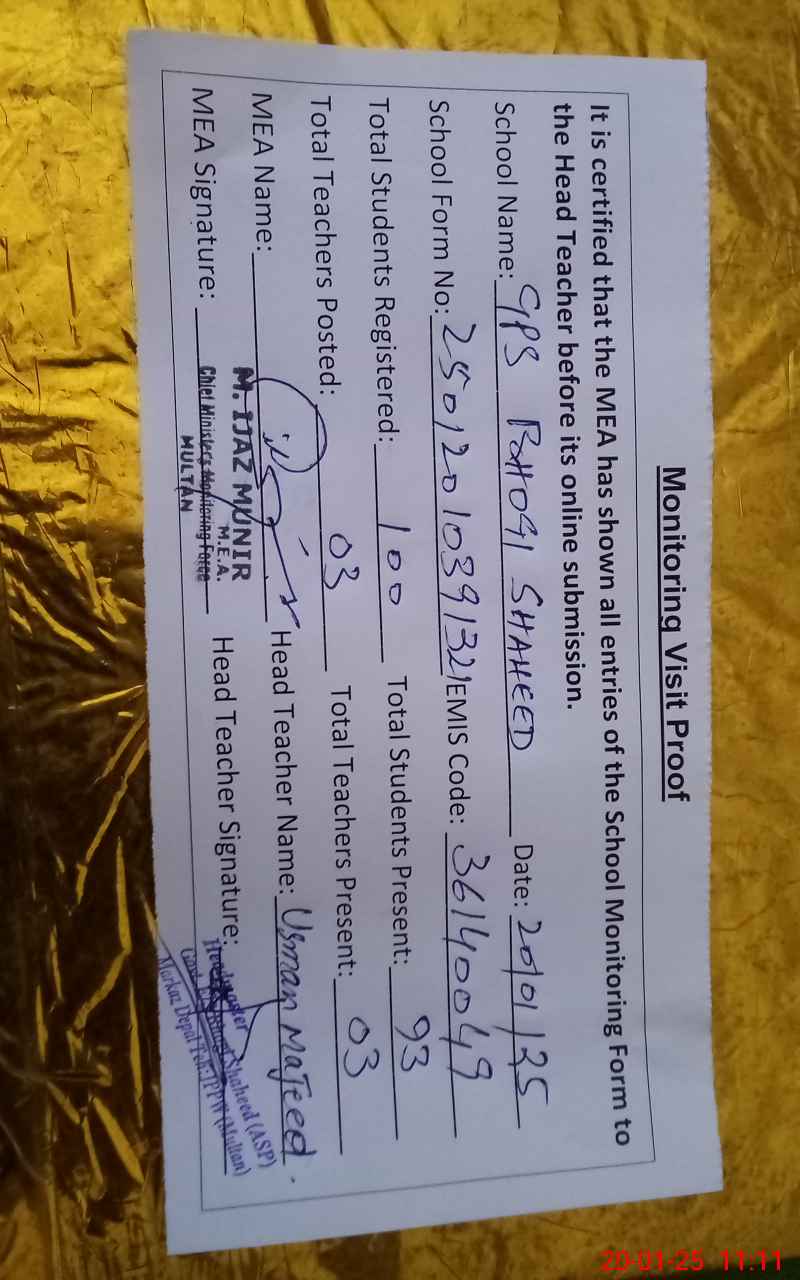 Monitoring Visit Proof
It is certified that the MEA has shown all entries of the School Monitoring Form to
the Head Teacher before its online submission.
School Name: GPS SHAHEED Date: 20/01/25
School Form No: 2501201039132 EMIS Code: 36140049
Total Students Registered: 100 Total Students Present: 93
Total Teachers Posted: 03 Total Teachers Present: 03
MEA Name: Head Teacher Name: Usman Majeed.
M. IJAZ MUNIR
M.E.A.
MEA Signature: Chief Ministers Monitoring Force Head Teacher Signature:
MULTAN
Headmaster
Shaheed (ASP)
Markaz Depal Teh: JPPW (Multan)
20-01-25 11:11